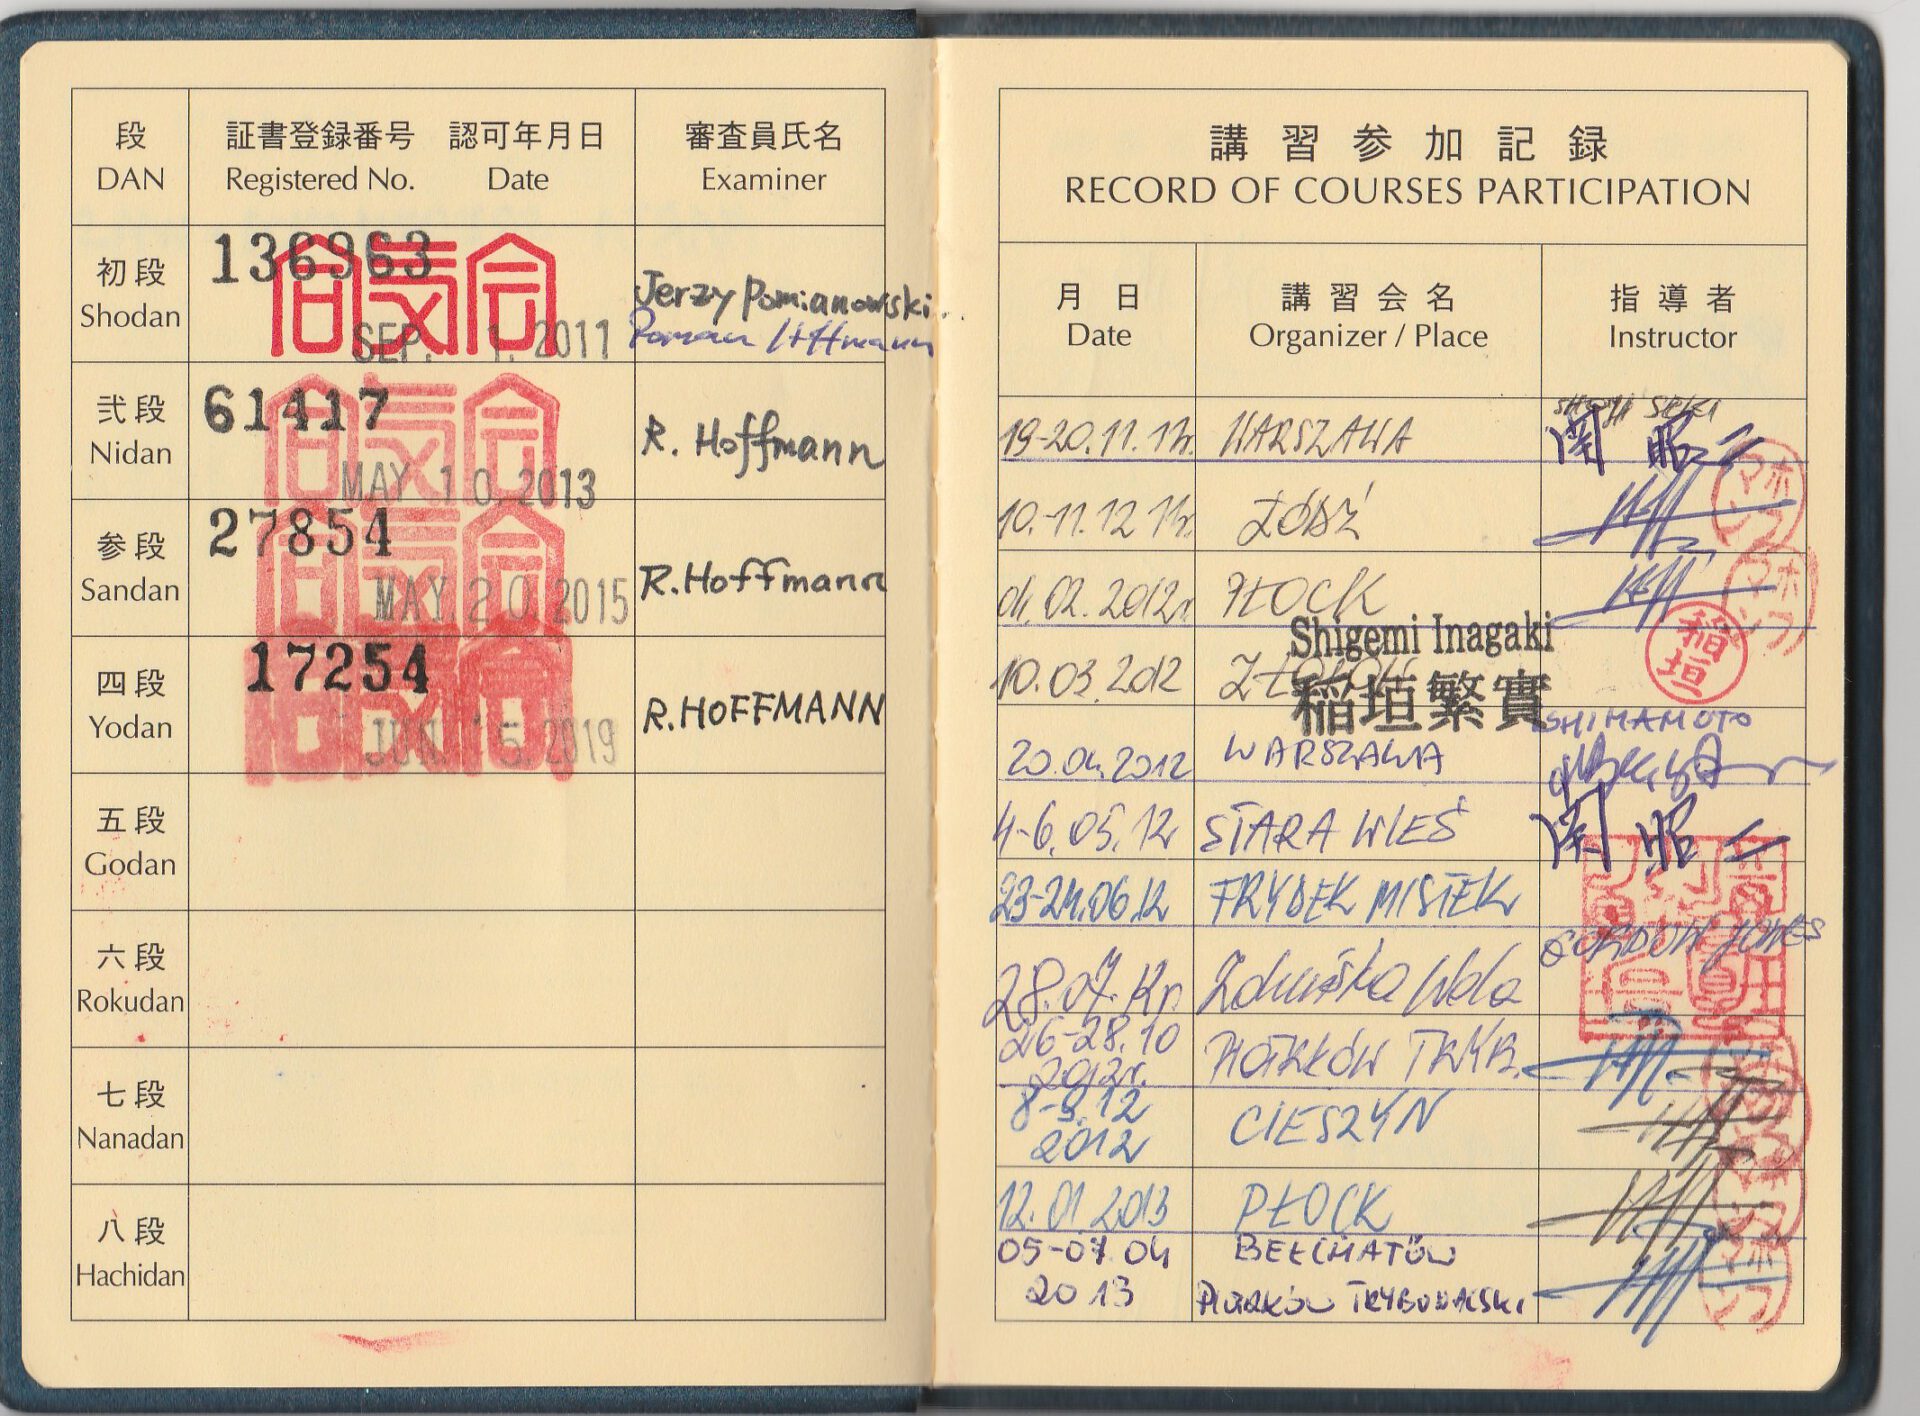 段 証書登録番号 認可年月日 審査員氏名
DAN Registered No. Date Examiner
初段 136963
Shodan SEP. 1. 2011 Jerzy Pomianowski
Roman Hoffmann
合気会
弐段 61417
Nidan MAY 10.2013 R. Hoffmann
合気会
参段 27854
Sandan MAY.20.2015 R.Hoffmann
合気会
四段 17254
Yodan JUN.15.2019 R.HOFFMANN
合気会
五段
Godan
六段
Rokudan
七段
Nanadan
八段
Hachidan
講習参加記録
RECORD OF COURSES PARTICIPATION
月日 講習会名 指導者
Date Organizer / Place Instructor
19-20.11.11r. WARSZAWA 関昭二
ホフマン
10.-11.12 11r. ŁÓDŹ
ホフマン
04.02.2012r PŁOCK
Shigemi Inagaki
稲垣
10.03.2012
稲垣繁實
SHIMAMOTO
20.04.2012 WARSZAWA
4-6.05.12 STARA WIEŚ 関昭二
23-24.06.12 FRYDEK MISTEK
GORDON JONES
28.07. Zduńska Wola
26-28.10 PIOTRKÓW TRYB.
2012r.
8-9.12 CIESZYN
2012
12.01.2013 PŁOCK
05-07.04 BEŁCHATÓW
ホフマン
2013 PIOTRKÓW TRYBUNALSKI